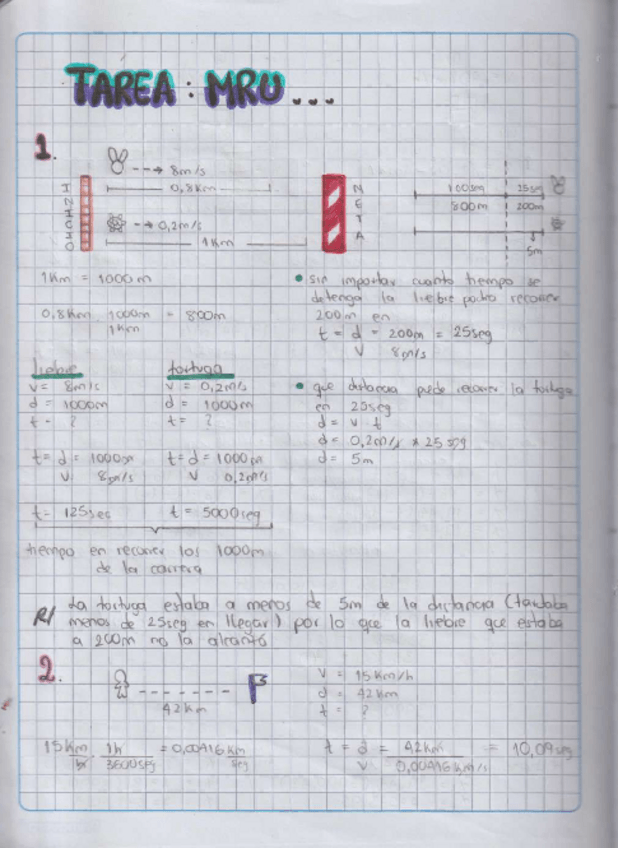 TAREA: MRU...
1.
8m/s
0,8Km
0,2m/s
1Km
META
100seg 25seg
800m 200m
5m
1Km = 1000m
0,8Km 1000m = 800m
1Km
• sin importar cuanto tiempo se
detenga la liebre podra recorrer
200m en
t = d = 200m = 25seg
v 8m/s
liebre tortuga
v = 8m/s v = 0,2m/s
d = 1000m d = 1000m
t = ? t = ?
t = d = 1000m t = d = 1000m
v 8m/s v 0,2m/s
t = 125seg t = 5000seg
• que distancia puede recorrer la tortuga
en 25seg
d = v t
d = 0,2m/s * 25seg
d = 5m
tiempo en recorrer los 1000m
de la carrera
R/ La tortuga estaba a menos de 5m de la distancia (tardaba
menos de 25seg en llegar) por lo que la liebre que estaba
a 200m no la alcanzó
2.
42Km
v = 15Km/h
d = 42Km
t = ?
15Km . 1h = 0,00416Km
hr 3600seg seg
t = d = 42Km = 10,09seg
v 0,00416Km/s